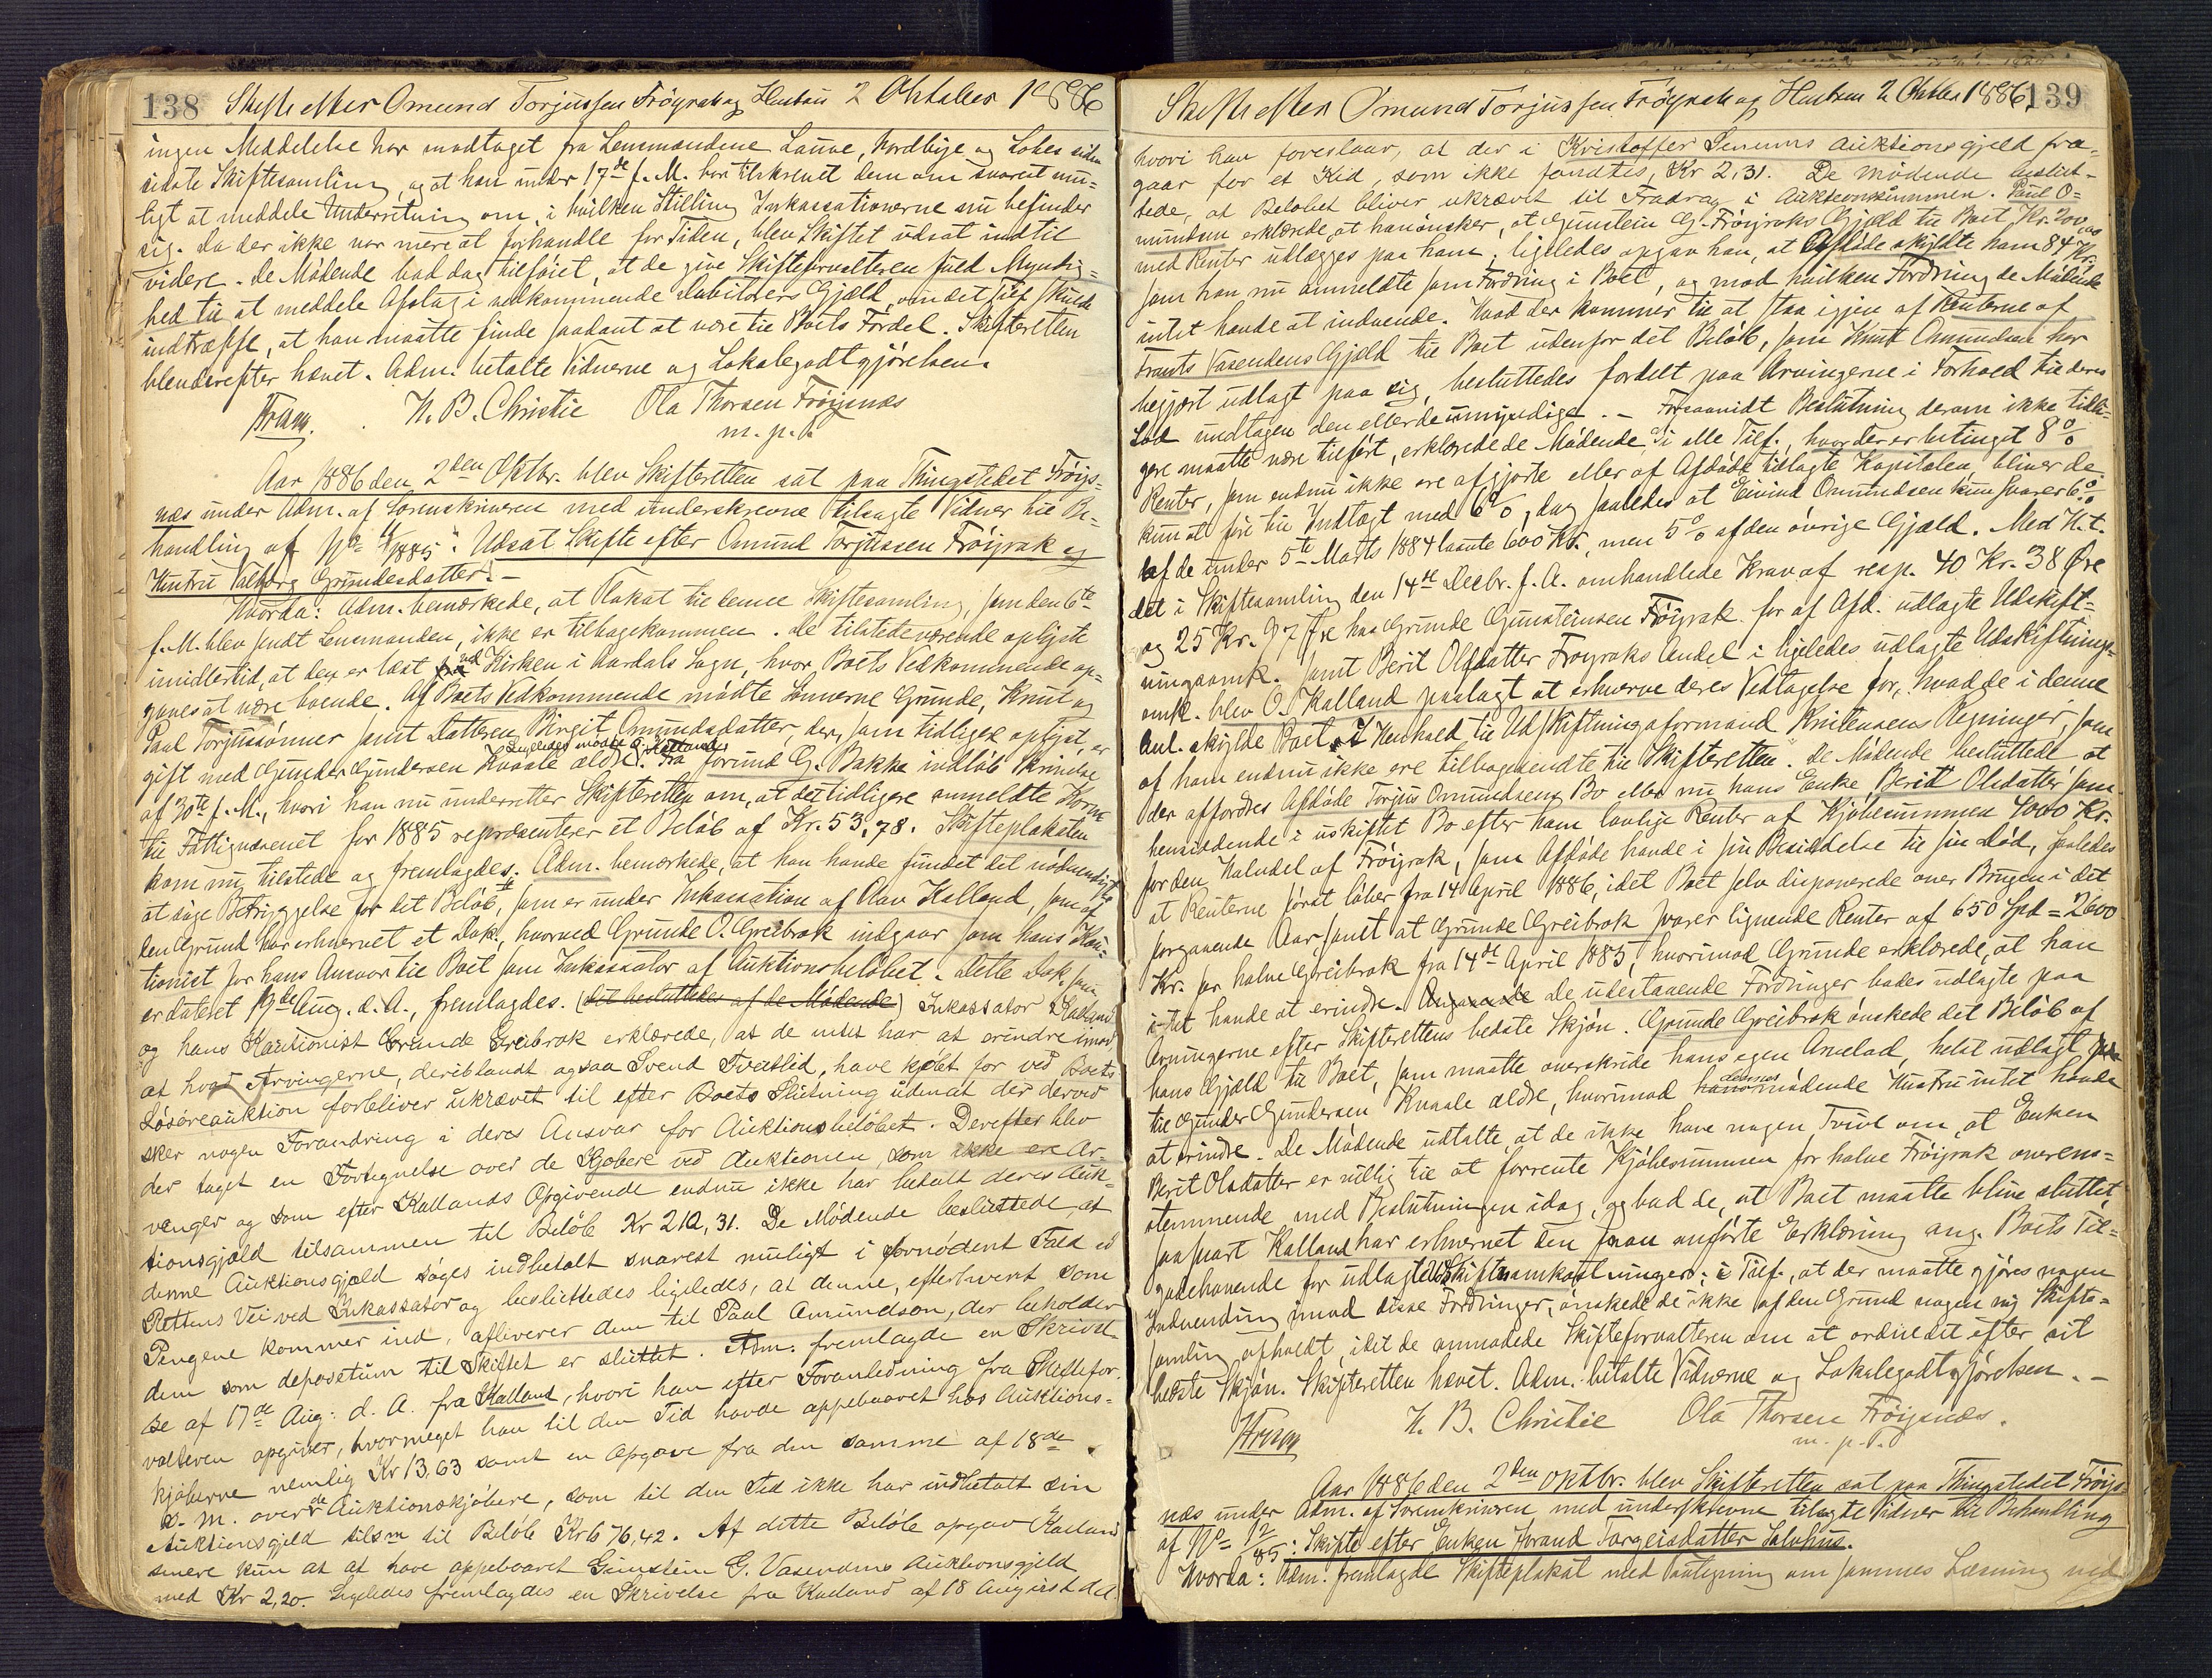 138 Skifte efter Omund Torjussen Frøyrak og Hustru 2 Oktober 1886
ingen Meddelelse har modtaget fra Lensmændene Lauve, Nordbye og siden
sidste Skiftesamling, og at han under 17de f. M. har tilskrevet dem om snarest mu-
ligt at meddele Underretning om, i hvilken Stilling Inkassationerne nu befinder
sig. Da der ikke var mere at forhandle for Tiden, blev Skiftet udsat indtil
videre. De Mødende bad dog tilføiet, at de give Skifteforvalteren fuld Myndig-
hed til at meddele Afslag i vedkommende Debitorers Gjæld, om det Tilf. skulde
indtræffe, at han maatte finde saadant at være til Boets Fordel. Skifteretten
blev derefter hævet. Adm. betalte Vidnerne og Lokalegodtgjørelsen.
H. B. Christie Ola Thorsen Frøisnæs
m. p. P.
Aar 1886 den 2den Oktbr. blev Skifteretten sat paa Thingstedet Frøys-
næs under Adm. af Sorenskriveren med underskrevne tilsagte Vidner til Be-
handling af No 11/1885: Udsat Skifte efter Omund Torjussen Frøyrak og
Hustru Valborg Grundesdatter. —
Hvorda: Adm. bemærkede, at Plakat til denne Skiftesamling, som den 6te
f. M. blev sendt Lensmanden, ikke er tilbagekommen. De tilstedeværende oplyste
imidlertid, at den er læst ved Kirken i Aardals Sogn, hvor Boets Vedkommende op-
gaves at være boende. Af Boets Vedkommende mødte Sønnerne Grunde, Knut og
Paal Torjussønner samt Datteren Birgit Omundsdatter, der, som tidligere oplyst, er
gift med Gunder Gundersen Kvaale ældre. Ligeledes mødte O. Kalland. Fra Jorund G. Bakke indløb Skrivelse
af 30te f. M., hvori han nu underretter Skifteretten om, at det tidligere anmeldte Korn
til Fattigvæsenet for 1885 repræsenterer et Beløb af Kr. 53,78. Skifteplakaten
kom nu tilstede og fremlagdes. Adm. bemærkede, at han havde fundet det nødvendigt
at søge Betryggelse for det Beløb, som er under Inkassation af Olav Kalland, som af
den Grund har erhvervet et Dok., hvorved Grunde O. Greibrok indgaar som hans Kau-
tionist for hans Ansvar til Boet som Inkassator af Auktionsbeløbet. Dette Dok., som
er dateret 19de Aug. d. A., fremlagdes. (det besluttedes af de Mødende) Inkassator Kalland
og hans Kautionist Grunde Greibrok erklærede, at de intet har at erindre imod
at hvad Arvingerne, deriblandt ogsaa Svend Tveitlid, have kjøbt for ved Boets
Løsøreauktion forbliver ukrævet til efter Boets Slutning uden at der derved
sker nogen Forandring i deres Ansvar for Auktionsbeløbet. Derefter blev
der taget en Fortegnelse over de Kjøbere ved Auktionen, som ikke ere Ar-
vinger og som efter Kallands Opgivende endnu ikke har betalt deres Auk-
tionsgjæld tilsammen til Beløb Kr 212,31. De Mødende besluttede, at
denne Auktionsgjæld søges indbetalt snarest muligt i fornødent Fald ad
Rettens Vei ved Inkassator og besluttedes ligeledes, at denne, efterhvert som
Pengene kommer ind, afliverer dem til Paul Amundson, der beholder
dem som depositum til Skiftet er sluttet. Adm. fremlagde en Skrivel-
se af 17de Aug: d. A. fra Kalland, hvori han efter Foranledning fra Skiftefor-
valteren opgiver, hvormeget han til den Tid havde oppebaaret hos Auktions-
kjøberne nemlig Kr 13,63 samt en Opgave fra den samme af 18de
s. M. over de Auktionskjøbere, som til den Tid ikke har indbetalt sin
Auktionsgjeld tilsm til Beløb Kr 676,42. Af dette Beløb opgav Kalland
senere kun at have oppebaaret Gunstein G. Vasendens Auktionsgjeld
med Kr 2,20. Ligeledes fremlagdes en Skrivelse fra Kalland af 18 August d. A.
Skifte efter Omund Torjussen Frøyrak og Hustru 2 Oktbr 1886 139
hvori han foreslaar, at der i Kristoffer Senums Auktionsgjeld fra-
gaar for et Kid, som ikke fandtes, Kr 2,31. De mødende beslut-
tede, at Beløbet bliver ukrævet til Fradrag i Auktionssummen. Paul O-
mundsen erklærede, at han ønsker, at Gunstein G. Frøyraks Gjæld til Boet Kr. 200,00
med Renter udlægges paa ham; ligeledes opgav han, at Afdøde skyldte ham 84 Kr.
som han nu anmeldte som Fordring i Boet, og mod hvilken Fordring de Mødende
intet havde at indvende. Hvad der kommer til at staa igjen af Renterne af
Frants Vasendens Gjæld til Boet udenfor det Beløb, som Knut Omundsen har
begjært udlagt paa sig, besluttedes fordelt paa Arvingerne i Forhold til deres
Lod undtagen den eller de umyndige. — Forsaavidt Beslutning derom ikke tidli-
gere maatte være tilført, erklærede de Mødende, at i alle Tilf., hvor der er betinget 8 %
Renter, som endnu ikke ere afgjorte eller af Afdøde tillagte Kapitalen, bliver de
kun at føre til Indtægt med 6 %, dog saaledes at Eivind Omundsen kun svarer 6 %
af de under 5te Marts 1884 laante 600 Kr., men 5 % af den øvrige Gjæld. Med H. t.
det i Skiftesamling den 14de Decbr. f. A. omhandlede Krav af resp. 40 Kr. 38 Øre
og 25 Kr. 97 Øre hos Grunde Gunsteinsen Frøyrak for af Afd. udlagte Udskift-
ningsomk. samt Berit Olsdatter Frøyraks Andel i ligeledes udlagte Udskiftnings-
omk. blev O. Kalland paalagt at erhverve deres Vedtagelse for, hvad de i denne
Anl. skylde Boet i Henhold til Udskiftningsformand Kristensens Regninger, som
af ham endnu ikke ere tilbagesendte til Skifteretten. De Mødende besluttede at
der affordres Afdøde Torjus Omundsens Bo eller nu hans Enke Berit Olsdatter som
hensiddende i uskiftet Bo efter ham lovlige Renter af Kjøbesummen 4000 Kr.
for den Halvdel af Frøyrak, som Afdøde havde i sin Besiddelse til sin Død, saaledes
at Renterne først løber fra 14 April 1886, idet Boet selv disponerede over Brugen i det
forgaaende Aar samt at Grunde Greibrok svarer lignende Renter af 650 Spd = 2600
Kr. for halve Greibrok fra 14de April 1885, hvorimod Grunde erklærede, at han
intet havde at erindre. Angaaende De udestaaende Fordringer bades udlagte paa
Arvingerne efter Skifterettens bedste Skjøn. Grunde Greibrok ønskede det Beløb af
hans Gjæld til Boet, som maatte overskride hans egen Arvelod, helst udlagt
til Gunder Gundersen Kvaale ældre, hvorimod dennes mødende Hustru intet havde
at erindre. De Mødende udtalte, at de ikke have nogen Tvivl om, at Enken
Berit Olsdatter er villig til at forrente Kjøbesummen for halve Frøyrak overens-
stemmende med Beslutningen idag, og bad de, at Boet maatte blive sluttet,
saasnart Kalland har erhvervet den foran anførte Erklæring ang. Boets Til-
godehavende for udlagte Udskiftningsomkostninger; i Tilf., at der maatte gjøres nogen
Indvending imod disse Fordringer, ønskede de ikke af den Grund nogen ny Skifte-
samling afholdt, idet de anmodede Skifteforvalteren om at ordne det efter sit
bedste Skjøn. Skifteretten hævet. Adm. betalte Vidnerne og Lokalegodtgjørelsen. —
H. B. Christie Ola Thorsen Frøisnæs.
m. p. P.
Aar 1886 den 2den Oktbr. blev Skifteretten sat paa Thingstedet Frøys-
næs under Adm. af Sorenskriveren med underskrevne tilsagte Vidner til Behandling
af No 12/85: Skifte efter Enken Jorand Targeisdatter
Hvorda: Adm. fremlagde Skifteplakat med Paategning om sammes Læsning ved